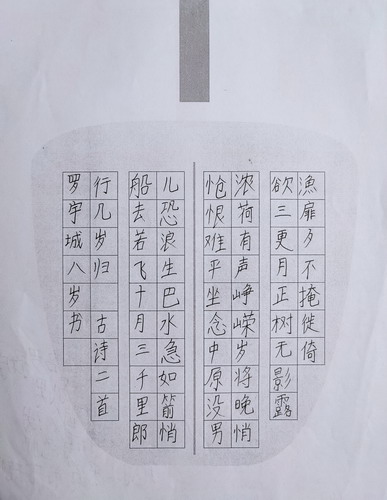 漁扉夕不掩徙倚
欲三更月正树无影露
浓荷有声峥嵘岁将晚悄
怆恨难平坐念中原没男
儿恐浪生巴水急如箭悄
船去若飞十月三千里郎
行几岁归 古诗二首
罗宇城八岁书